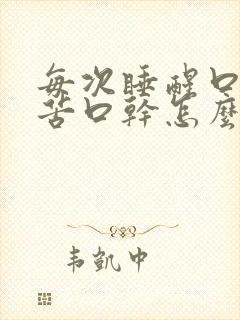 每次睡醒口
苦口幹怎麼
韦凱中